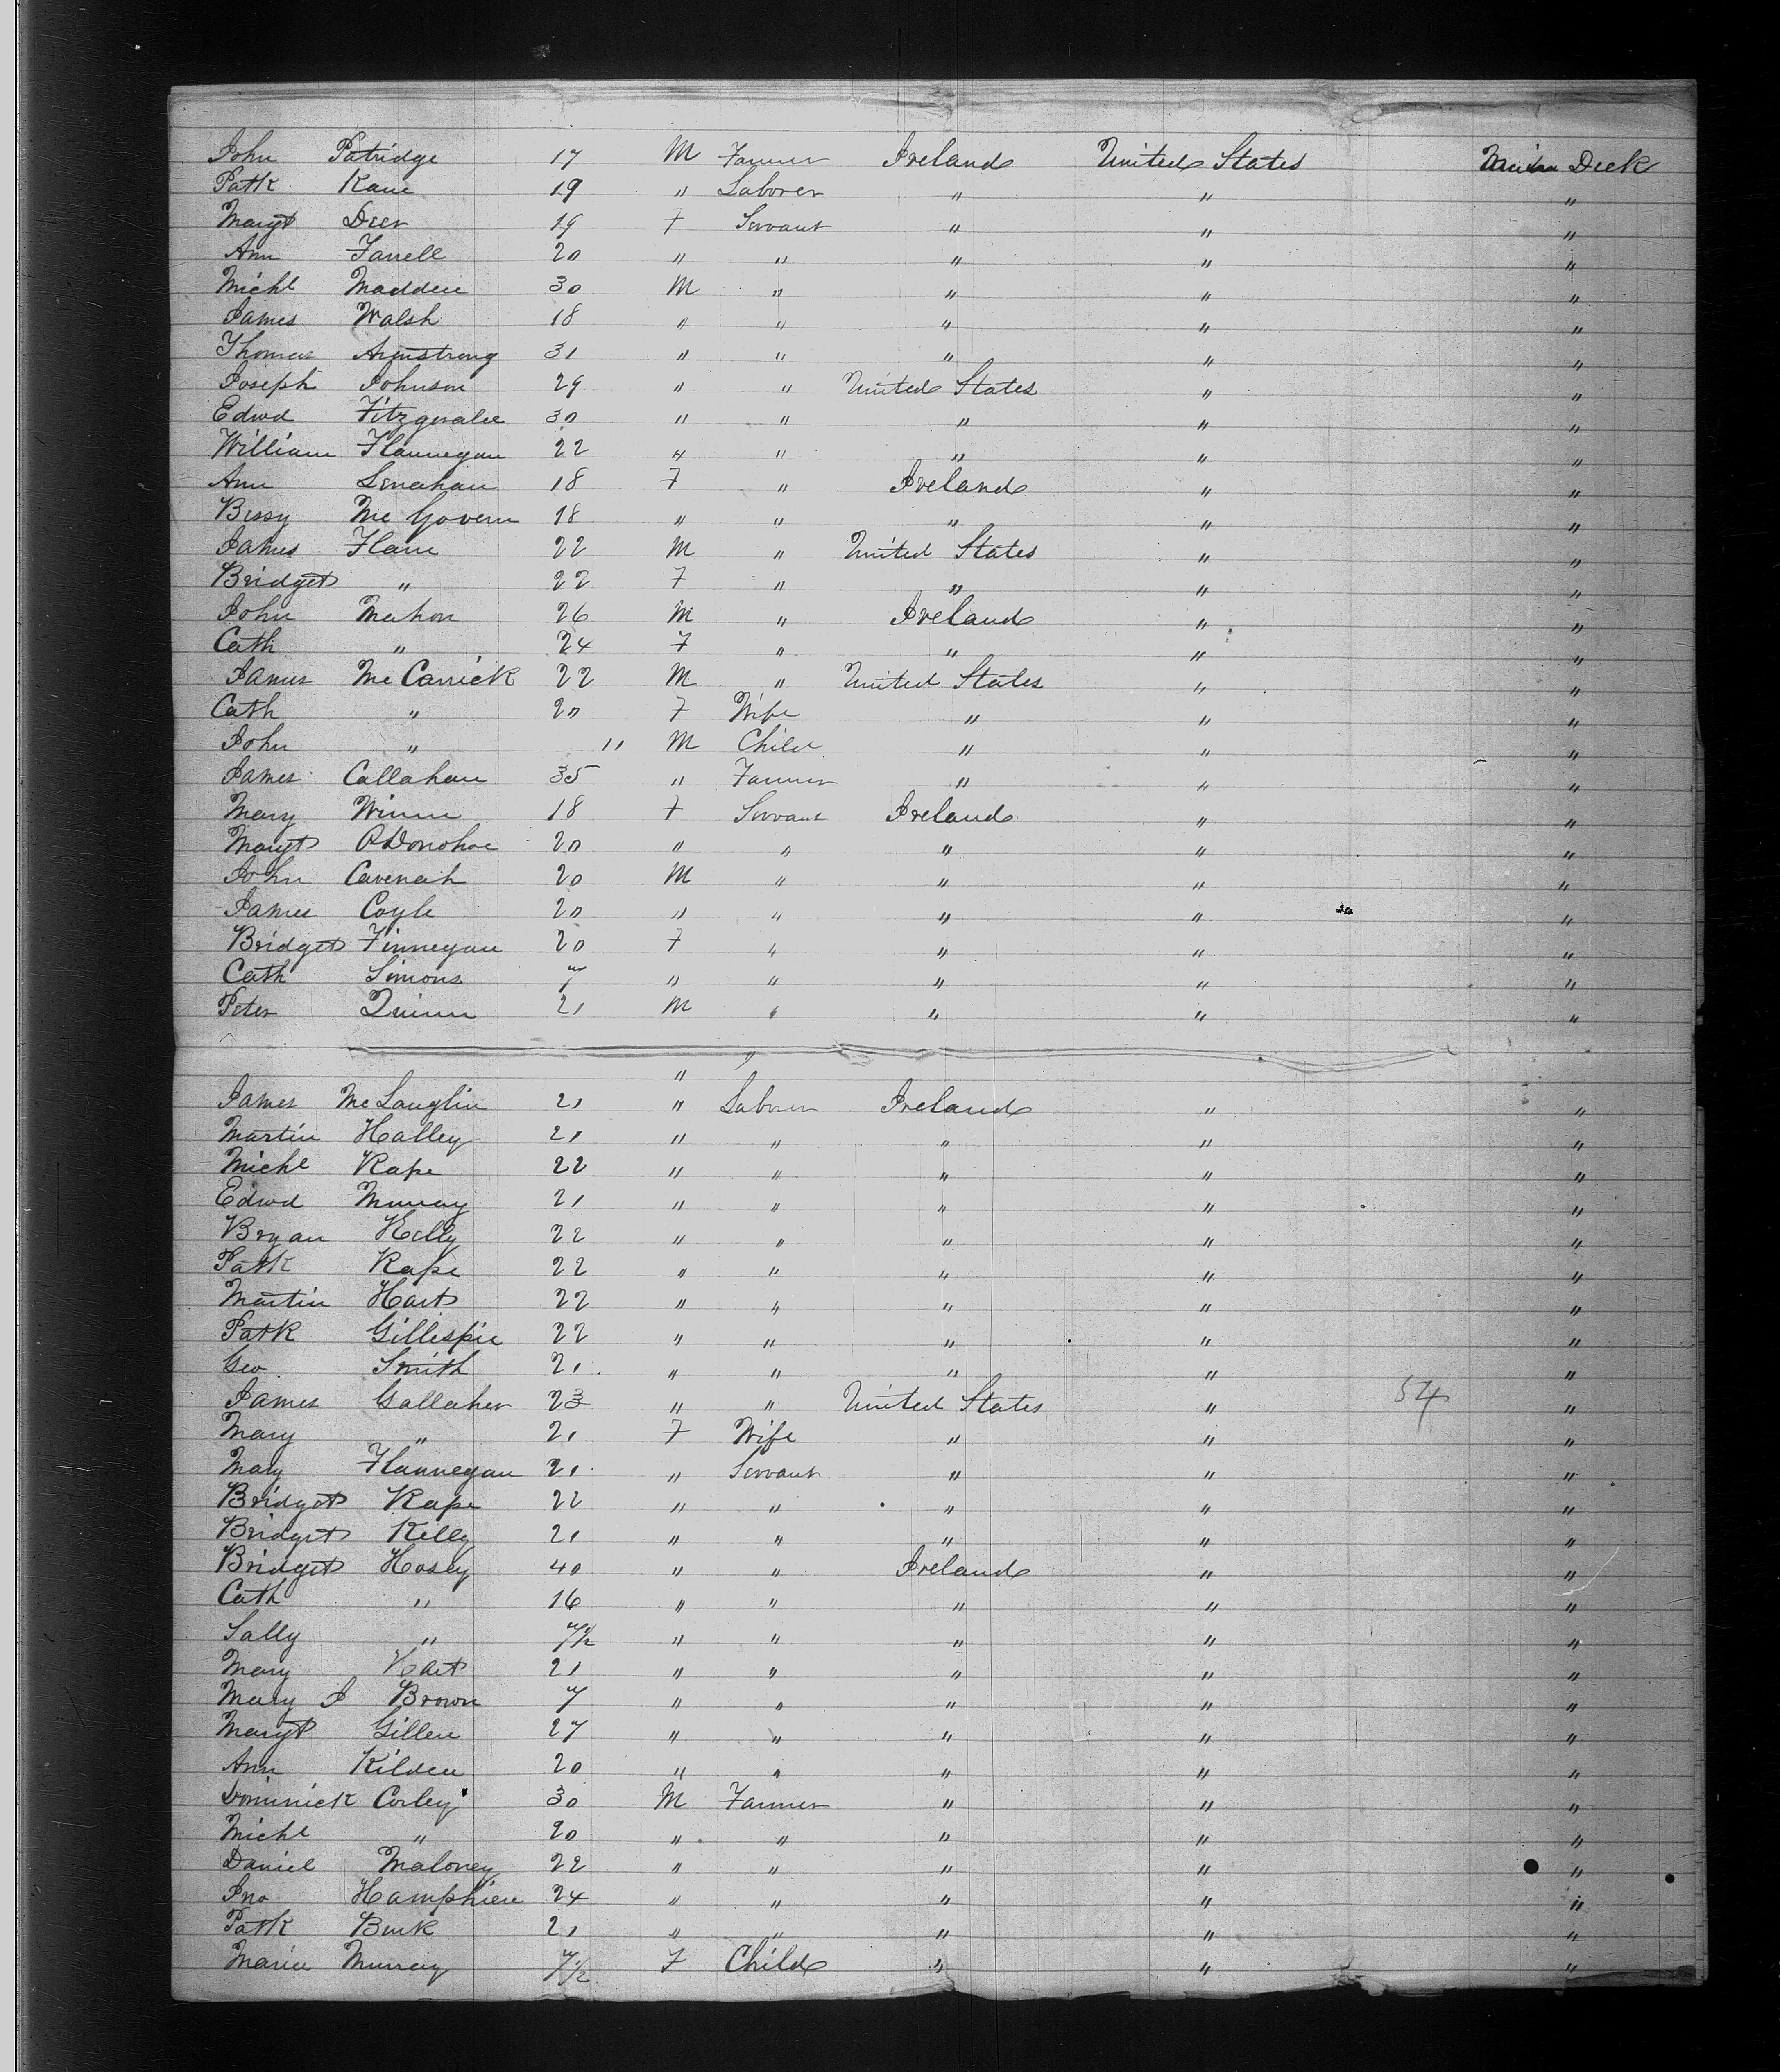 John Patridge 17 M Farmer Ireland United States Main Deck
Patk Kane 19 " Laborer " " "
Margt Deer 19 F Servant " " "
Ann Farrell 20 " " " " "
Michl Madden 30 M " " " "
James Walsh 18 " " " " "
Thomas Armstrong 31 " " " " "
Joseph Johnson 29 " " United States " "
Edwd Fitzgerald 30 " " " " "
William Flannegan 22 " " " " "
Ann Lenahan 18 F " Ireland " "
Bessy McGovern 18 " " " " "
James Flann 22 M " United States " "
Bridget " 22 F " " " "
John Mahon 26 M " Ireland " "
Cath " 24 F " " " "
James McCarrick 22 M " United States " "
Cath " 20 F Wife " " "
John " 11 M Child " " "
James Callahan 35 " Farmer " " "
Mary Winne 18 F Servant Ireland " "
Margt ODonohoe 20 " " " " "
John Cavenah 20 M " " " "
James Coyle 20 " " " " "
Bridget Finnegan 20 F " " " "
Cath Simons 7 " " " " "
Peter Quinn 21 M " " " "
" "
James McLauglin 21 " Laborer Ireland " "
Martin Halley 21 " " " " "
Michl Kape 22 " " " " "
Edwd Murray 21 " " " " "
Bryan Kelly 22 " " " " "
Patk Kape 22 " " " " "
Martin Hart 22 " " " " "
Patk Gillespie 22 " " " " "
Geo Smith 21 " " " " "
James Gallaher 23 " " United States " 54 "
Mary " 21 F Wife " " "
Mary Flannegan 21 " Servant " " "
Bridget Kape 22 " " " " "
Bridget Kelly 21 " " " " "
Bridget Hosey 40 " " Ireland " "
Cath " 16 " " " " "
Sally " 7½ " " " " "
Mary Hart 21 " " " " "
Mary J Brown 7 " " " " "
Margt Gillen 27 " " " " "
Ann Kilden 20 " " " " "
Dominick Corley 30 M Farmer " " "
Michl " 20 " " " " "
Daniel Maloney 22 " " " " "
Jno Hamphien 24 " " " " "
Patk Burk 21 " " " " "
Maria Murray 7½ F Child " " "